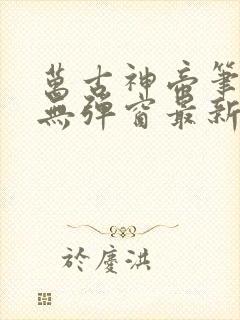 萬古神帝筆
無彈窗最新
於慶洪